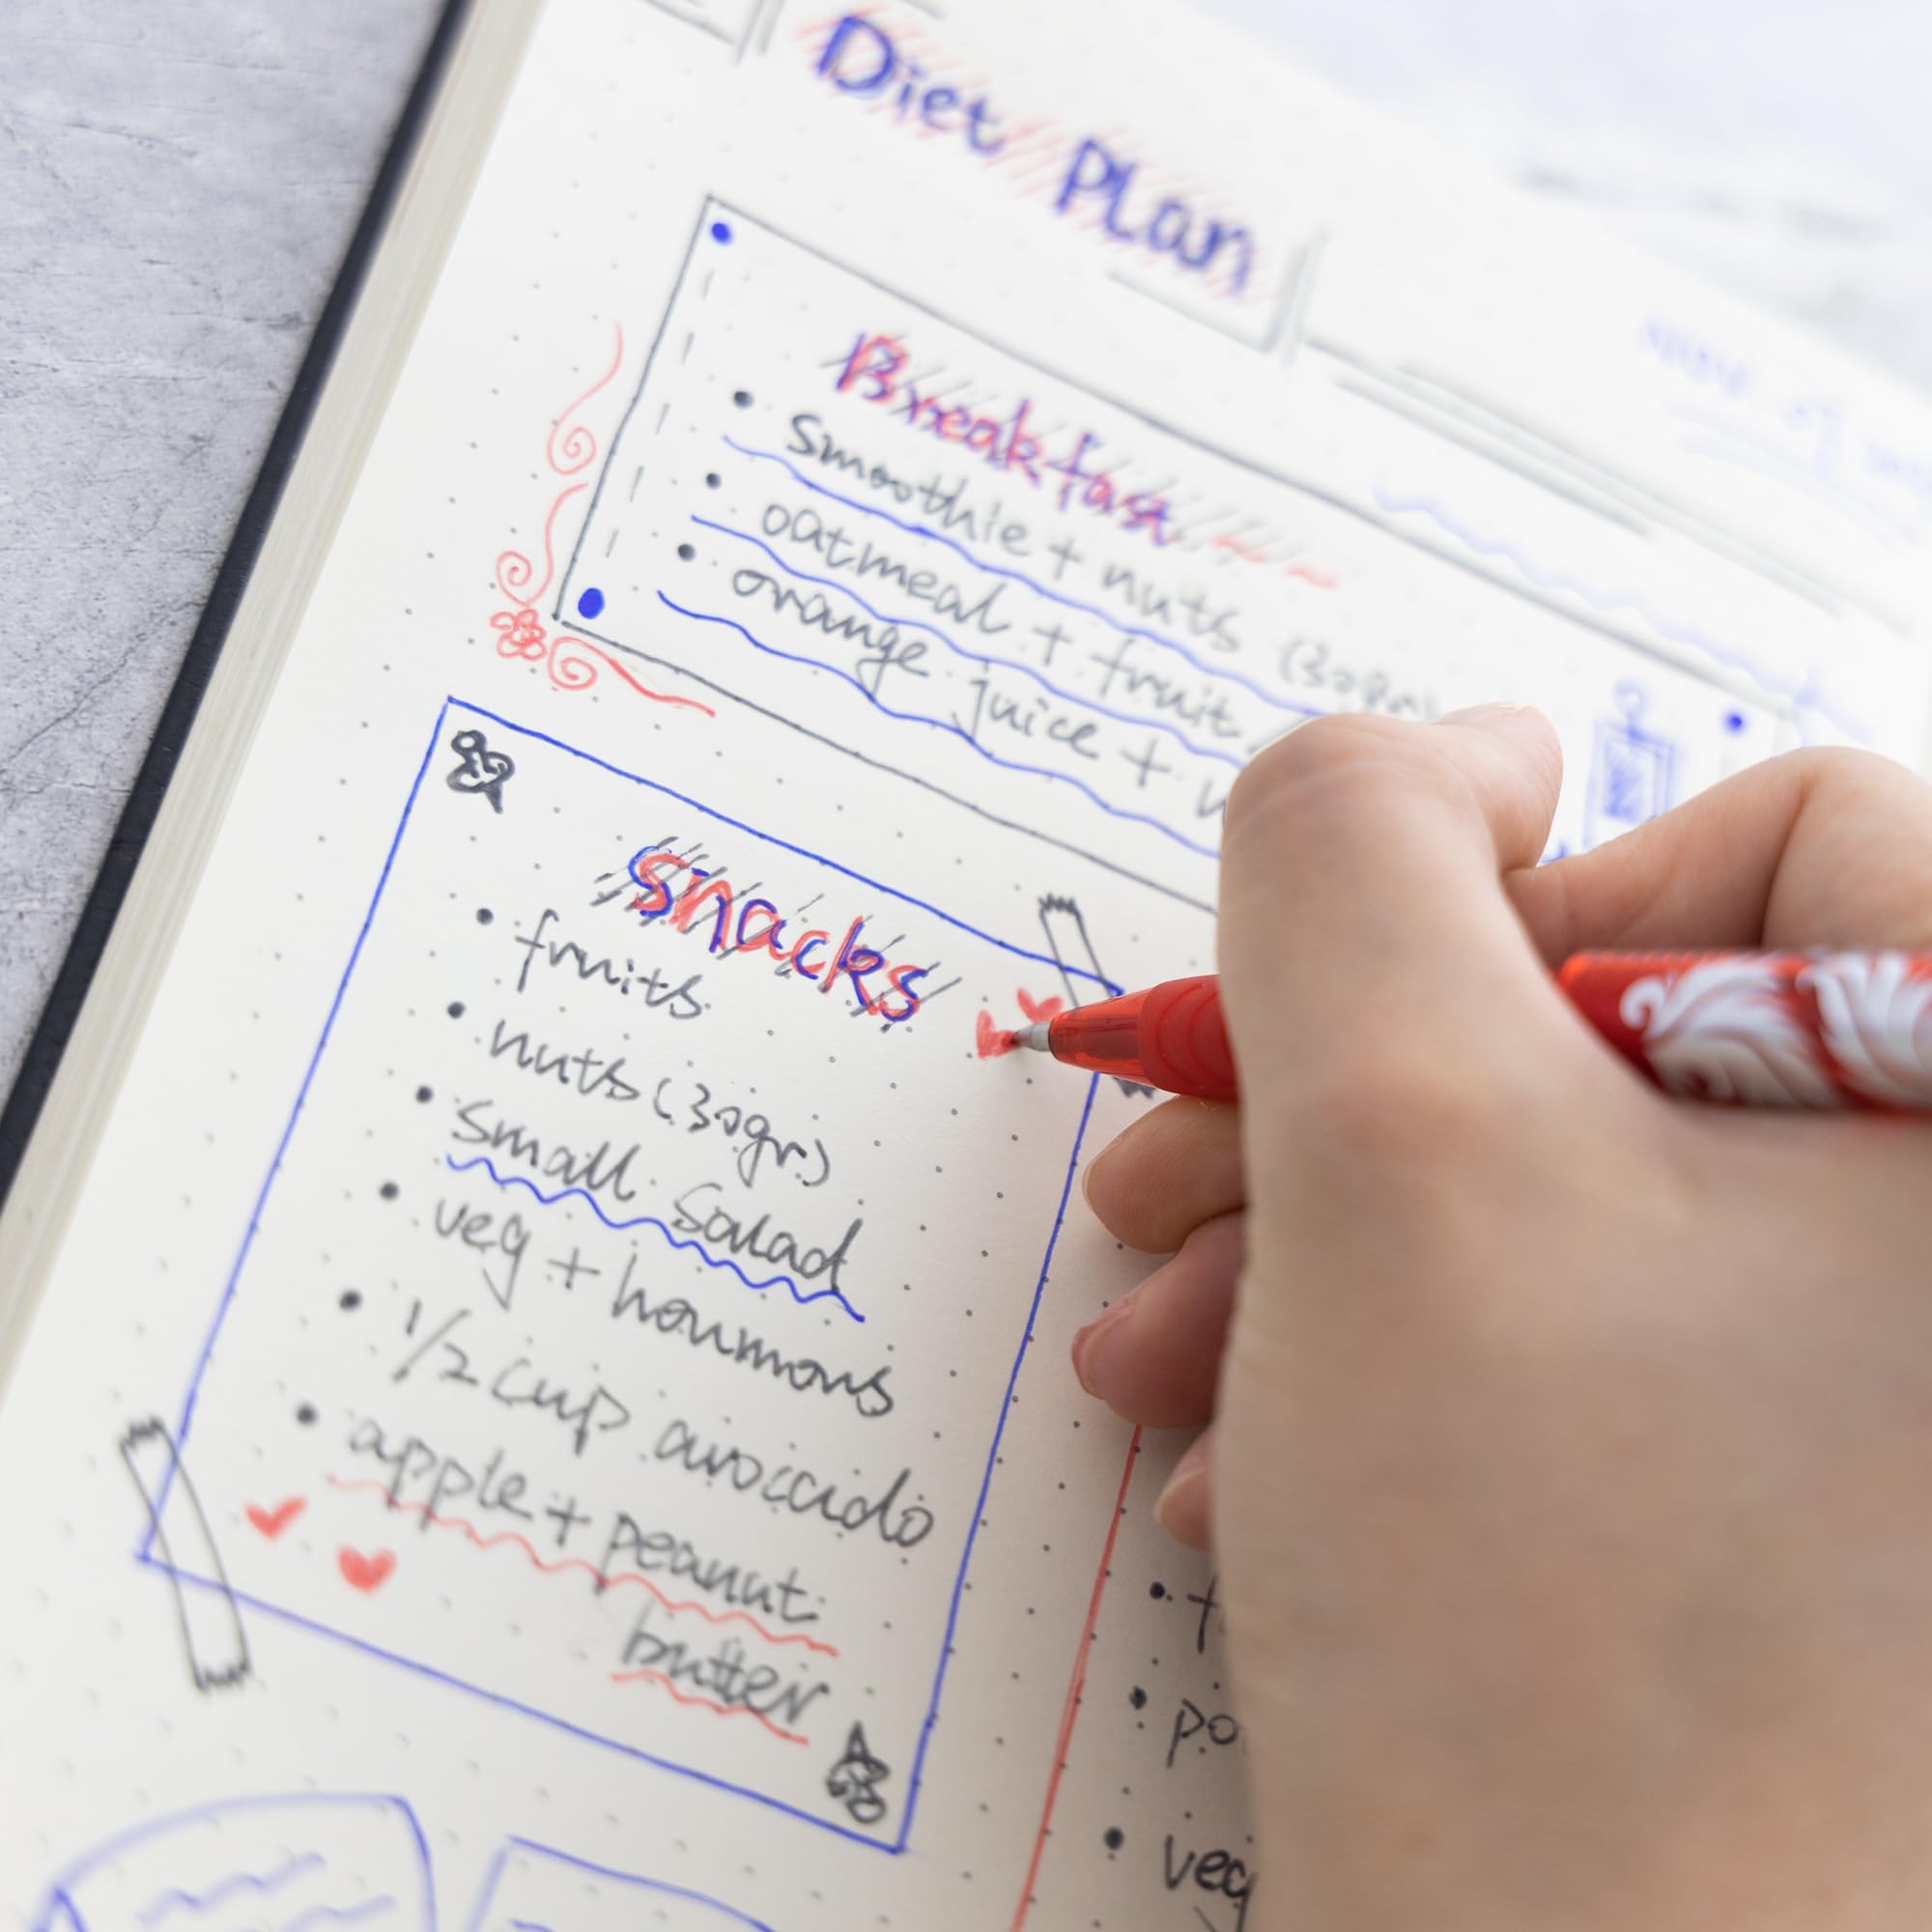 Diet Plan
Breakfast
• smoothie + nuts (30gr)
• oatmeal + fruit
• orange juice +
snacks
• fruits
• nuts (30gr)
• small salad
• veg + houmous
• 1/2 cup avoccido
• apple + peanut
butter
• veg